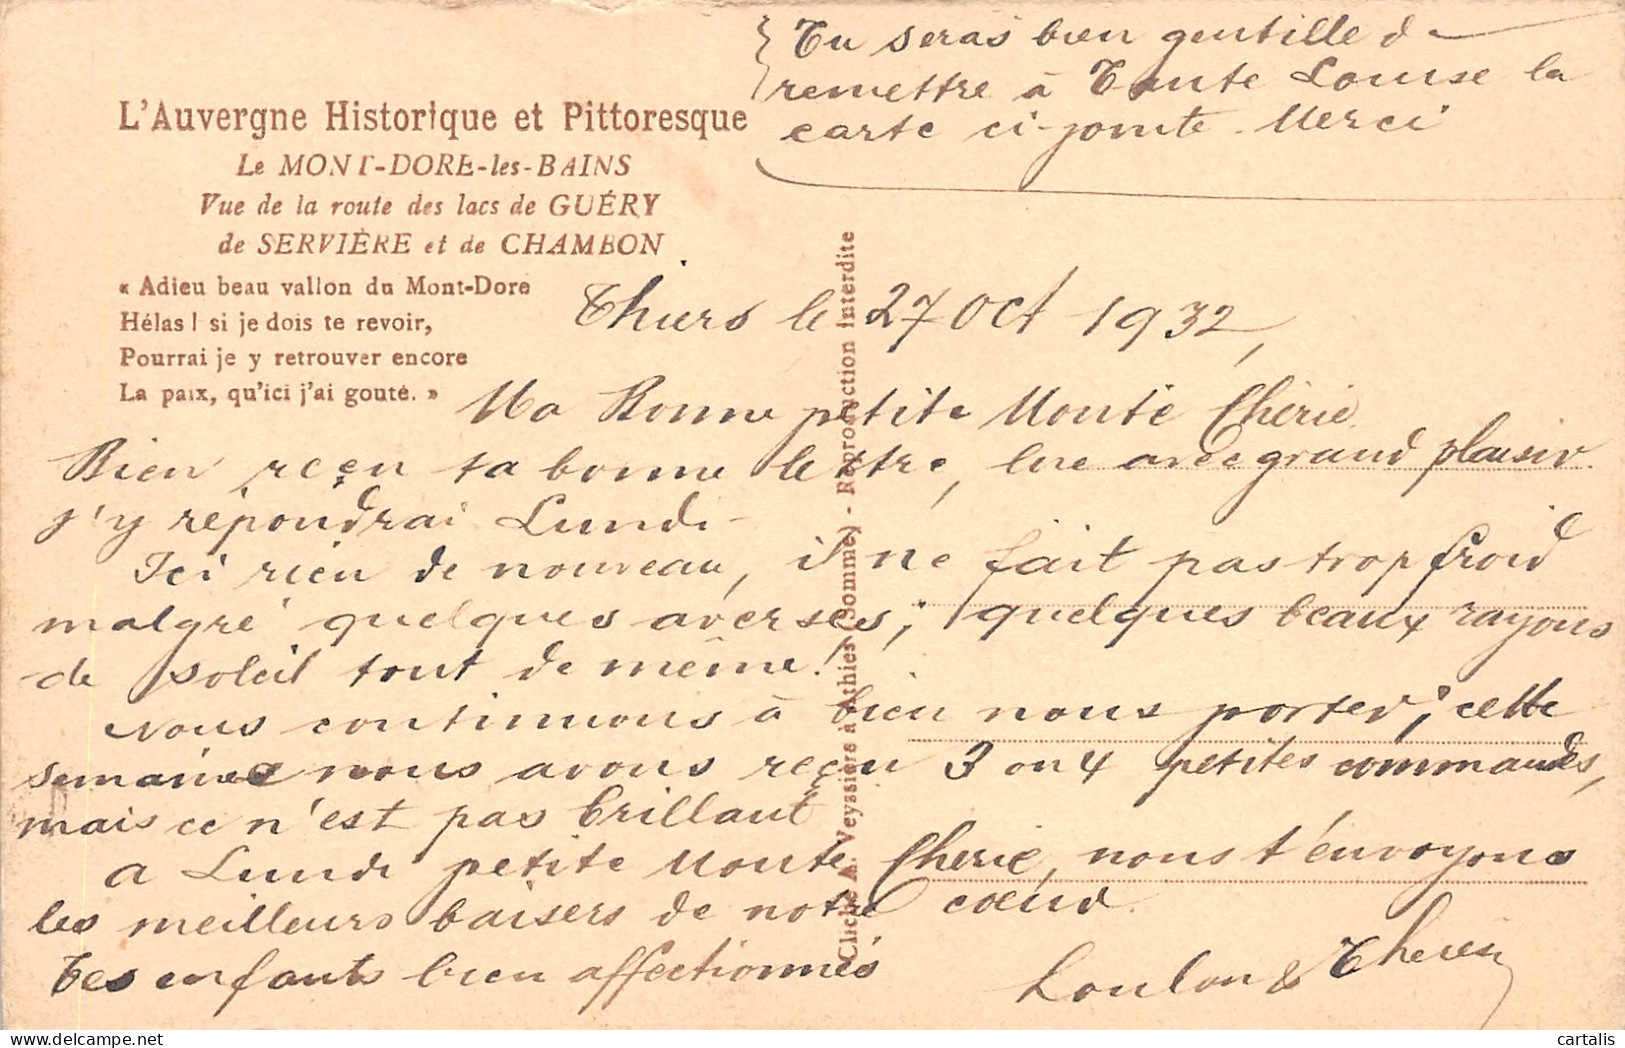 Tu seras bien gentille de
remettre à Tante Louise la
carte ci-jointe. Merci
L'Auvergne Historique et Pittoresque
Le MONT-DORE-les-BAINS
Vue de la route des lacs de GUÉRY
de SERVIÈRE et de CHAMBON
« Adieu beau vallon du Mont-Dore
Hélas ! si je dois te revoir,
Pourrai je y retrouver encore
La paix, qu'ici j'ai gouté. »
Cliché A. Veyssière à Athies (Somme) - Reproduction interdite
Thiers le 27 Oct 1932,
Ma Bonne petite Monté Chérie
Bien reçu ta bonne lettre, lue avec grand plaisir.
j'y répondrai Lundi -
Ici rien de nouveau, il ne fait pas trop froid
malgré quelques averses; quelques beaux rayons
de soleil tout de même!
Nous continuons à bien nous porter; cette
semaine nous avons reçu 3 ou 4 petites commandes,
mais ce n'est pas brillant
A Lundi petite Monté Chérie, nous t'envoyons
les meilleurs baisers de notre coeur.
Tes enfants bien affectionnés
Loulou &
cartalis